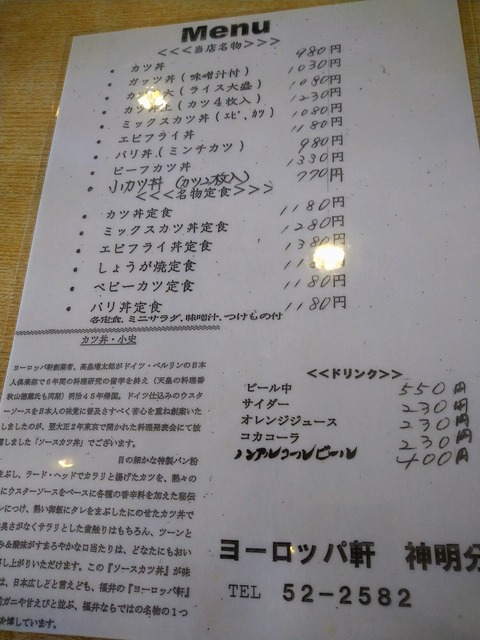 Menu
<<<当店名物>>>
・ カツ丼 980円
・ ガッツ丼(味噌汁付) 1030円
・ カツ丼大(ライス大盛) 1080円
・ カツ丼上(カツ4枚入) 1230円
・ ミックスカツ丼(エビ、カツ) 1080円
・ エビフライ丼 1180円
・ パリ丼(ミンチカツ) 980円
・ ビーフカツ丼 1330円
・ 小カツ丼(カツ2枚入) 770円
<<<名物定食>>>
・ カツ丼定食 1180円
・ ミックスカツ丼定食 1280円
・ エビフライ丼定食 1380円
・ しょうが焼定食 円
・ ベビーカツ定食 1180円
・ パリ丼定食 1180円
各定食、ミニサラダ、味噌汁、つけもの付
カツ丼・小史
ヨーロッパ軒創業者、高畠増太郎がドイツ・ベルリンの日本
人倶楽部で6年間の料理研究の留学を終え(天皇の料理番
秋山徳蔵氏も同期)明治45年帰国。ドイツ仕込みのウスタ
ーソースを日本人の味覚に普及さすべく苦心を重ね創案いた
しましたのが、翌大正2年東京で開かれた料理発表会にて披
露しました「ソースカツ丼」でございます。
目の細かな特製パン粉
まぶし、ラード・ヘッドでカラリと揚げたカツを、熱々の
にウスターソースをベースに各種の香辛料を加えた秘伝
レにつけ、熱い御飯にタレをまぶしたにのせたカツ丼で
良さがなくサラリとした食触りはもちろん、ツーンと
み&酸味がすまろやかな口当たりは、どなたにもおい
し上がりいただけます。この『ソースカツ丼』が味
は、日本広しと言えども、福井の『ヨーロッパ軒』
前ガニや甘えびと並ぶ、福井ならではの名物の1つ
を博しています。
<<ドリンク>>
ビール中 550円
サイダー 230円
オレンジジュース 230円
コカコーラ 230円
ノンアルコールビール 400円
ヨーロッパ軒 神明分
TEL 52-2582